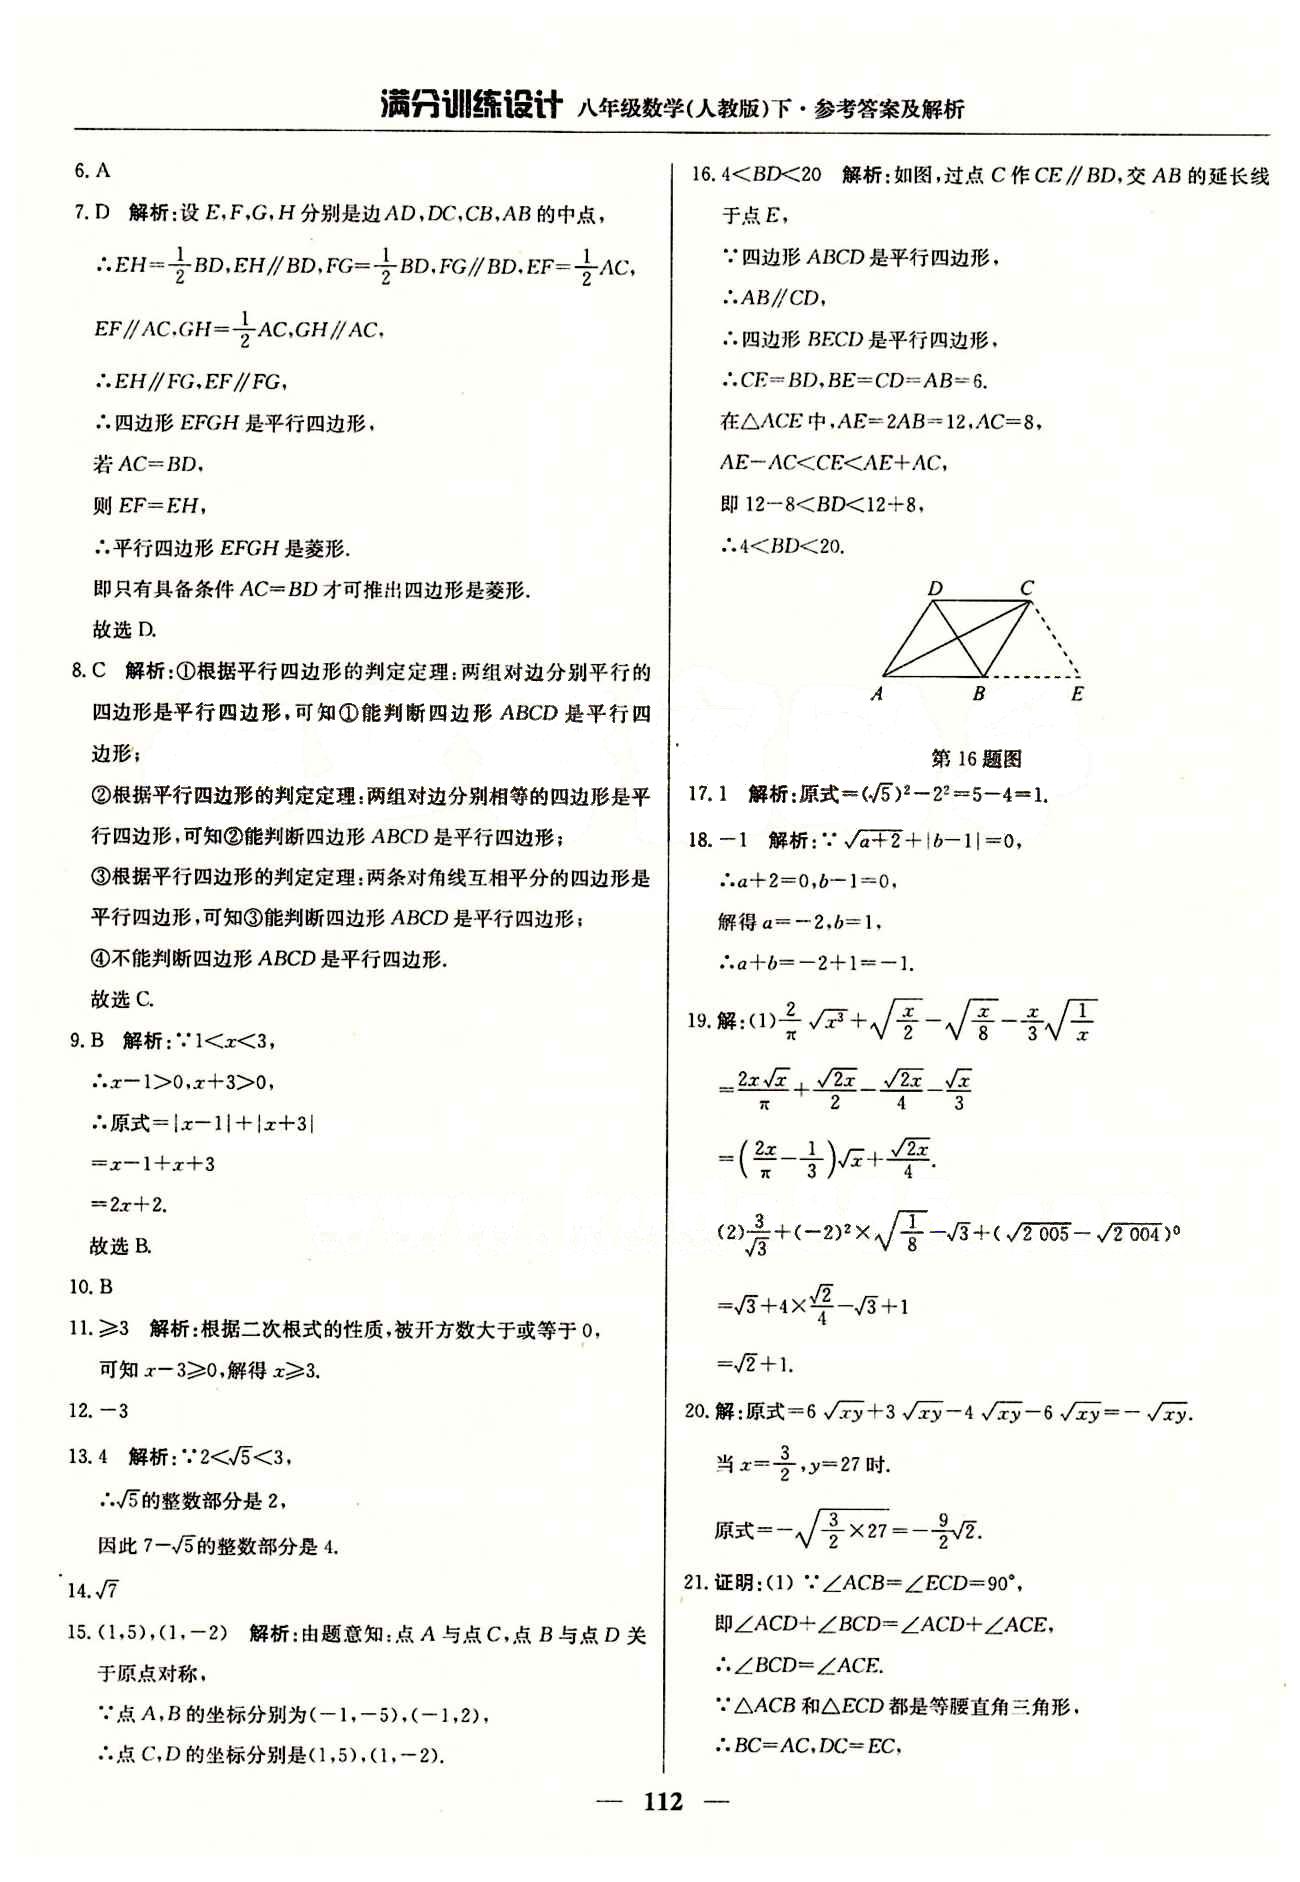 满分训练设计 八年级数学(人教版)下·参考答案及解析
6. A
7. D 解析:设 E,F,G,H 分别是边 AD,DC,CB,AB 的中点,
∴EH=1/2 BD,EH∥BD,FG=1/2 BD,FG∥BD,EF=1/2 AC,
EF∥AC,GH=1/2 AC,GH∥AC,
∴EH∥FG,EF∥FG,
∴四边形 EFGH 是平行四边形,
若 AC=BD,
则 EF=EH,
∴平行四边形 EFGH 是菱形.
即只有具备条件 AC=BD 才可推出四边形是菱形.
故选 D.
8. C 解析:①根据平行四边形的判定定理:两组对边分别平行的
四边形是平行四边形,可知①能判断四边形 ABCD 是平行四
边形;
②根据平行四边形的判定定理:两组对边分别相等的四边形是平
行四边形,可知②能判断四边形 ABCD 是平行四边形;
③根据平行四边形的判定定理:两条对角线互相平分的四边形是
平行四边形,可知③能判断四边形 ABCD 是平行四边形;
④不能判断四边形 ABCD 是平行四边形.
故选 C.
9. B 解析:∵1<x<3,
∴x-1>0,x+3>0,
∴原式=|x-1|+|x+3|
=x-1+x+3
=2x+2.
故选 B.
10. B
11. ≥3 解析:根据二次根式的性质,被开方数大于或等于 0,
可知 x-3≥0,解得 x≥3.
12. -3
13. 4 解析:∵2<√5<3,
∴√5的整数部分是 2,
因此 7-√5的整数部分是 4.
14. √7
15. (1,5),(1,-2) 解析:由题意知:点 A 与点 C,点 B 与点 D 关
于原点对称,
∵点 A,B 的坐标分别为(-1,-5),(-1,2),
∴点 C,D 的坐标分别是(1,5),(1,-2).
16. 4<BD<20 解析:如图,过点 C 作 CE∥BD,交 AB 的延长线
于点 E,
∵四边形 ABCD 是平行四边形,
∴AB∥CD,
∴四边形 BECD 是平行四边形,
∴CE=BD,BE=CD=AB=6.
在△ACE 中,AE=2AB=12,AC=8,
AE-AC<CE<AE+AC,
即 12-8<BD<12+8,
∴4<BD<20.
D C
A B E
第 16 题图
17. 1 解析:原式=(√5)²-2²=5-4=1.
18. -1 解析:∵√(a+2)+|b-1|=0,
∴a+2=0,b-1=0,
解得 a=-2,b=1,
∴a+b=-2+1=-1.
19. 解:(1) 2/π √(x³)+√(x/2)-√(x/8)-x/3 √(1/x)
=2x√x/π+√(2x)/2-√(2x)/4-√x/3
=(2x/π-1/3)√x+√(2x)/4.
(2) 3/√3+(-2)²×√(1/8)-√3+(√2 005-√2 004)⁰
=√3+4×√2/4-√3+1
=√2+1.
20. 解:原式=6√(xy)+3√(xy)-4√(xy)-6√(xy)=-√(xy).
当 x=3/2,y=27 时.
原式=-√(3/2×27)=-9/2 √2.
21. 证明:(1) ∵∠ACB=∠ECD=90°,
即∠ACD+∠BCD=∠ACD+∠ACE,
∴∠BCD=∠ACE.
∵△ACB 和△ECD 都是等腰直角三角形,
∴BC=AC,DC=EC,
— 112 —